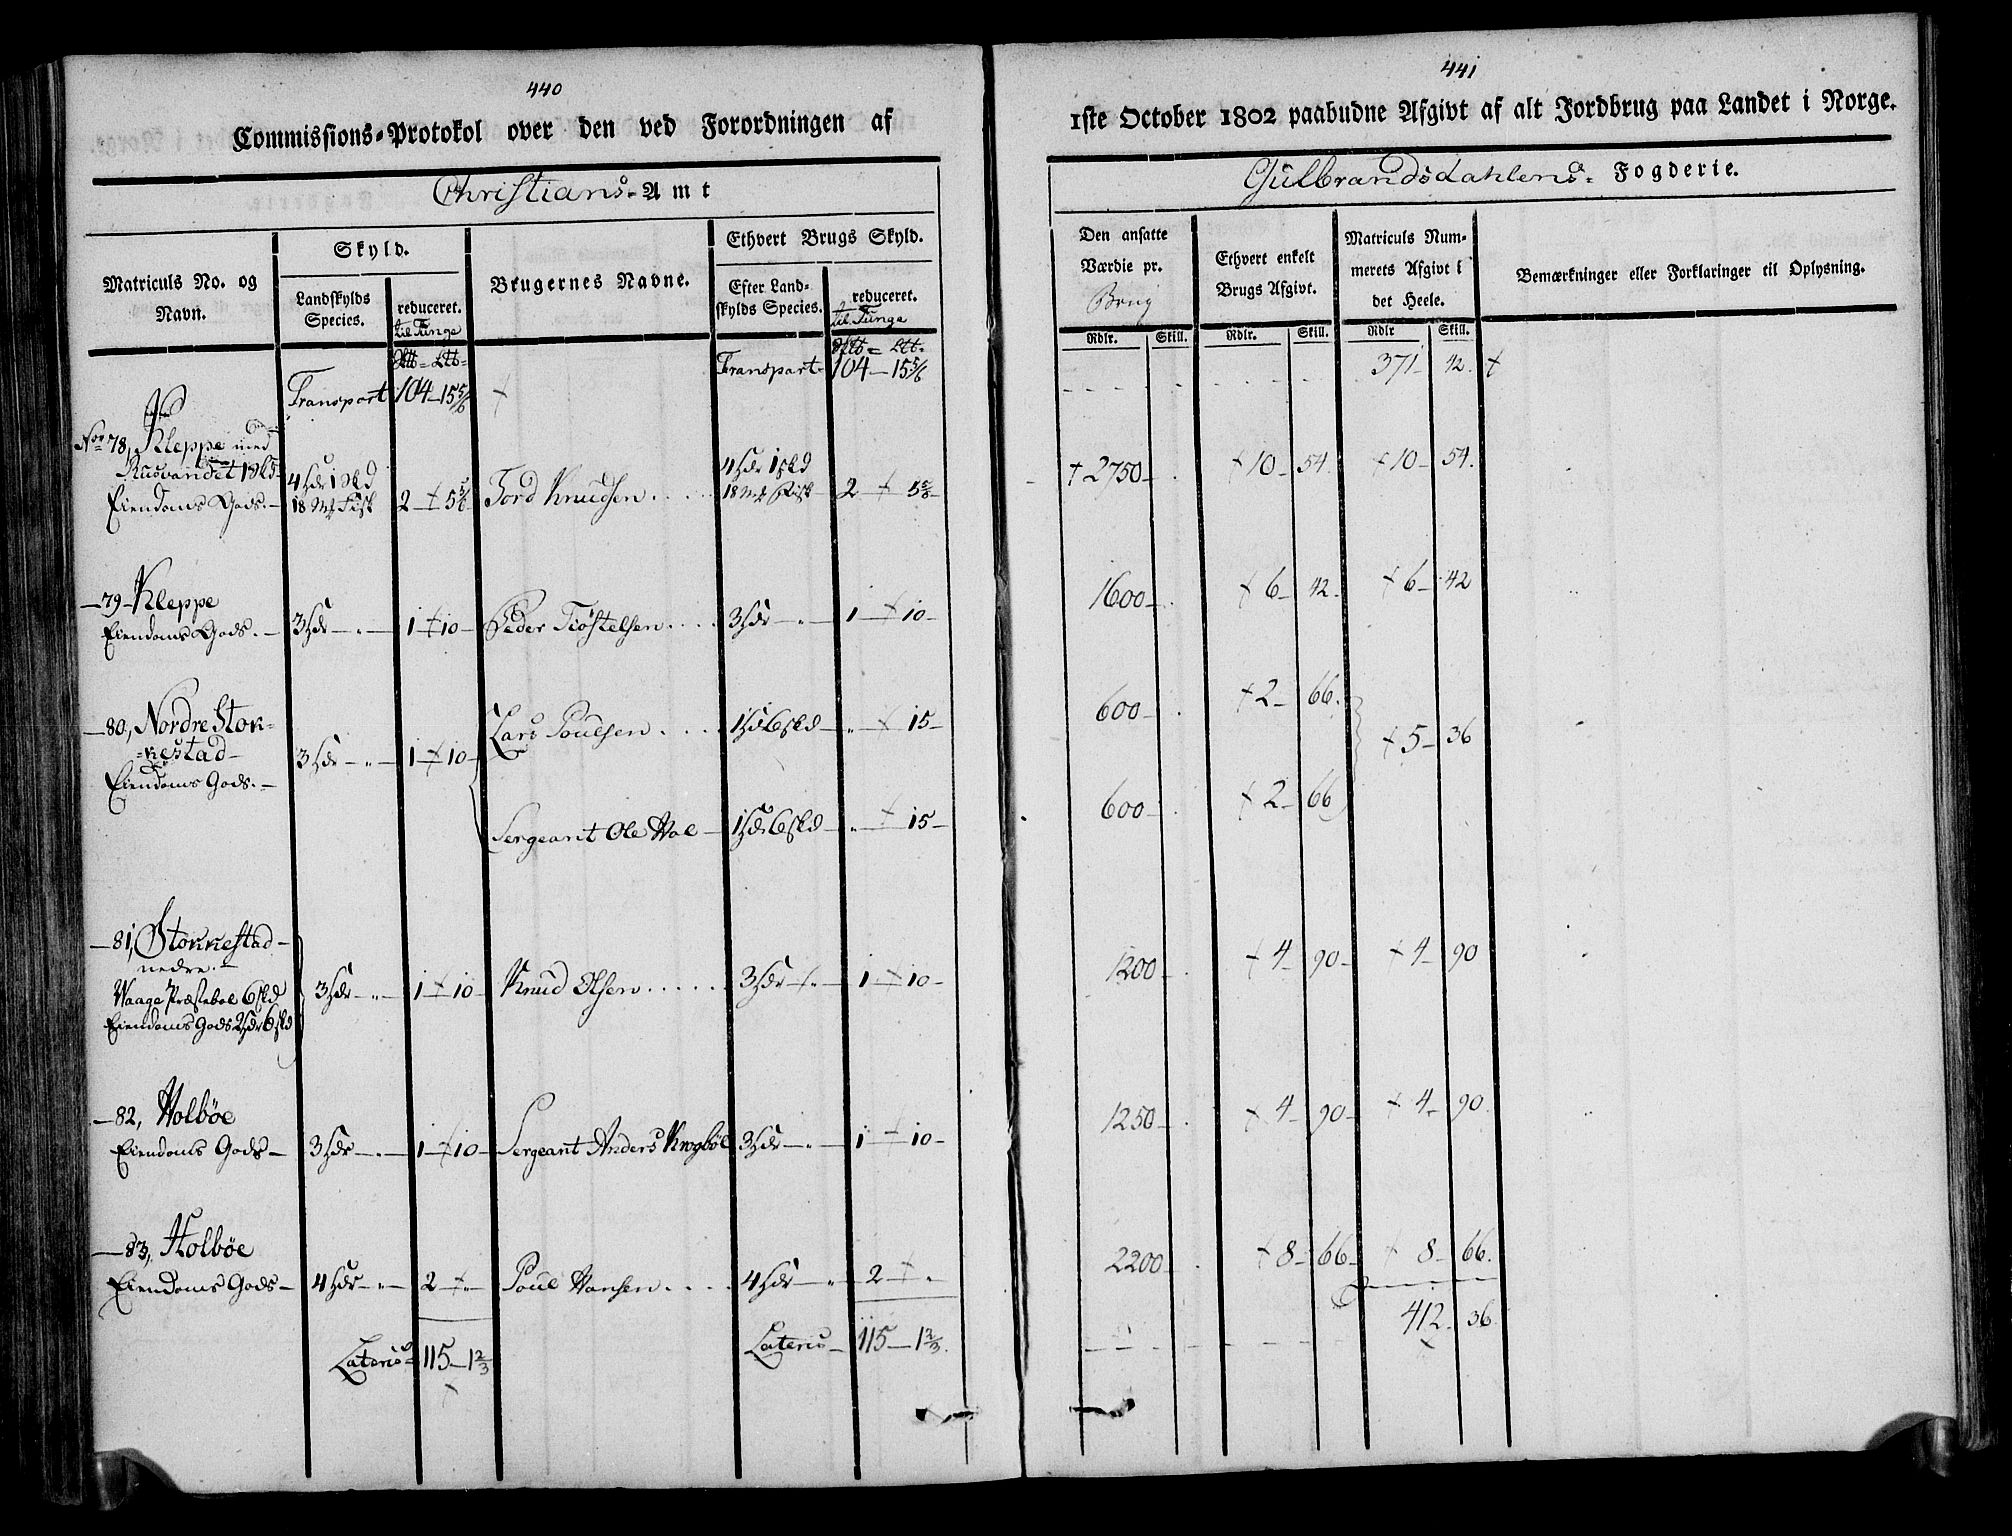 440
Commissions-Protokol over den ved Forordningen af
Christians-Amt
Matriculs No. og Navn.
Skyld.
Landskylds Species.
reduceret.
til Tunge
Brugernes Navne.
Ethvert Brugs Skyld.
Efter Landskylds Species.
reduceret.
til Tunge
Transport 104-15 5/6
Transport- 104-15 5/6
No 78, Kleppe med
Rusvandet 1 Skd
Eiendoms Gods.- 4 Hdr 1 Skd 18 Mk Fisk 2 5 5/6 Tord Knudsen 4 Hdr 1 skd 18 Mk Fisk 2 5 5/6
79 Kleppe
Eiendoms Gods.- 3 Hdr 1 10 Peder Tiøstelsen 3 Hdr 1 10
80, Nordre Stok-
=kestad-
Eiendoms Gods.- 3 Hdr 1 10
Lars Poulsen 1 Hd 6 skd " 15
Sergeant Ole Hole 1 Hd 6 skd " 15
81, Stokkestad-
nedre.-
Waage Præstebol 6 skd
Eiendoms Gods 2 Hdr 6 skd 3 Hdr 1 10 Knud Olsen 3 Hdr 1 10
82, Holbøe
Eiendoms Gods- 3 Hdr 1 10 Sergeant Anders Krogbøl 3 Hdr 1 10
83, Holbøe
Eiendoms Gods- 4 Hdr 2 " Poul Hansen 4 Hdr 2 "
Lateris- 115-1 2/3
Lateris- 115-1 2/3
441
1ste October 1802 paabudne Afgivt af alt Jordbrug paa Landet i Norge.
Gulbrandsdahlens- Fogderie.
Den ansatte Værdie pr.
Brug
Ethvert enkelt Brugs Afgivt.
Matriculs Nummerets Afgivt i det Heele.
Bemærkninger eller Forklaringer til Oplysning.
Rdlr. Skill. Rdlr. Skill. Rdlr Skill.
371- 42.
2750- 10- 54. 10- 54.
1600- 6- 42. 6- 42
600- 2- 66.
5- 36
600- 2- 66
1200- 4- 90- 4- 90
1250- 4- 90- 4- 90.
2200- 8- 66- 8- 66.
412. 36.